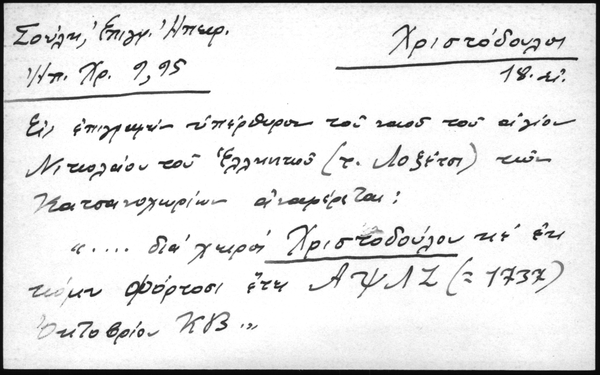 Σούλη, Ἐπιγρ. Ἠπειρ.
Χριστόδουλος
Ἠπ. Χρ. 9, 95
18. αἰ.
Εἰς ἐπιγραφὴν ὑπέρθυρον τοῦ ναοῦ τοῦ ἁγίου
Νικολάου τοῦ Ἑλληνικοῦ (τ. Λοζέτσι) τῶν
Κατσανοχωρίων ἀναφέρεται:
".... διὰ χειρὸς Χριστοδούλου κὲ ἐκ
κόμη Φόρτοσι ἔτη ΑΨΛΖ (= 1737)
Ὀκτοβρίου ΚΒ"